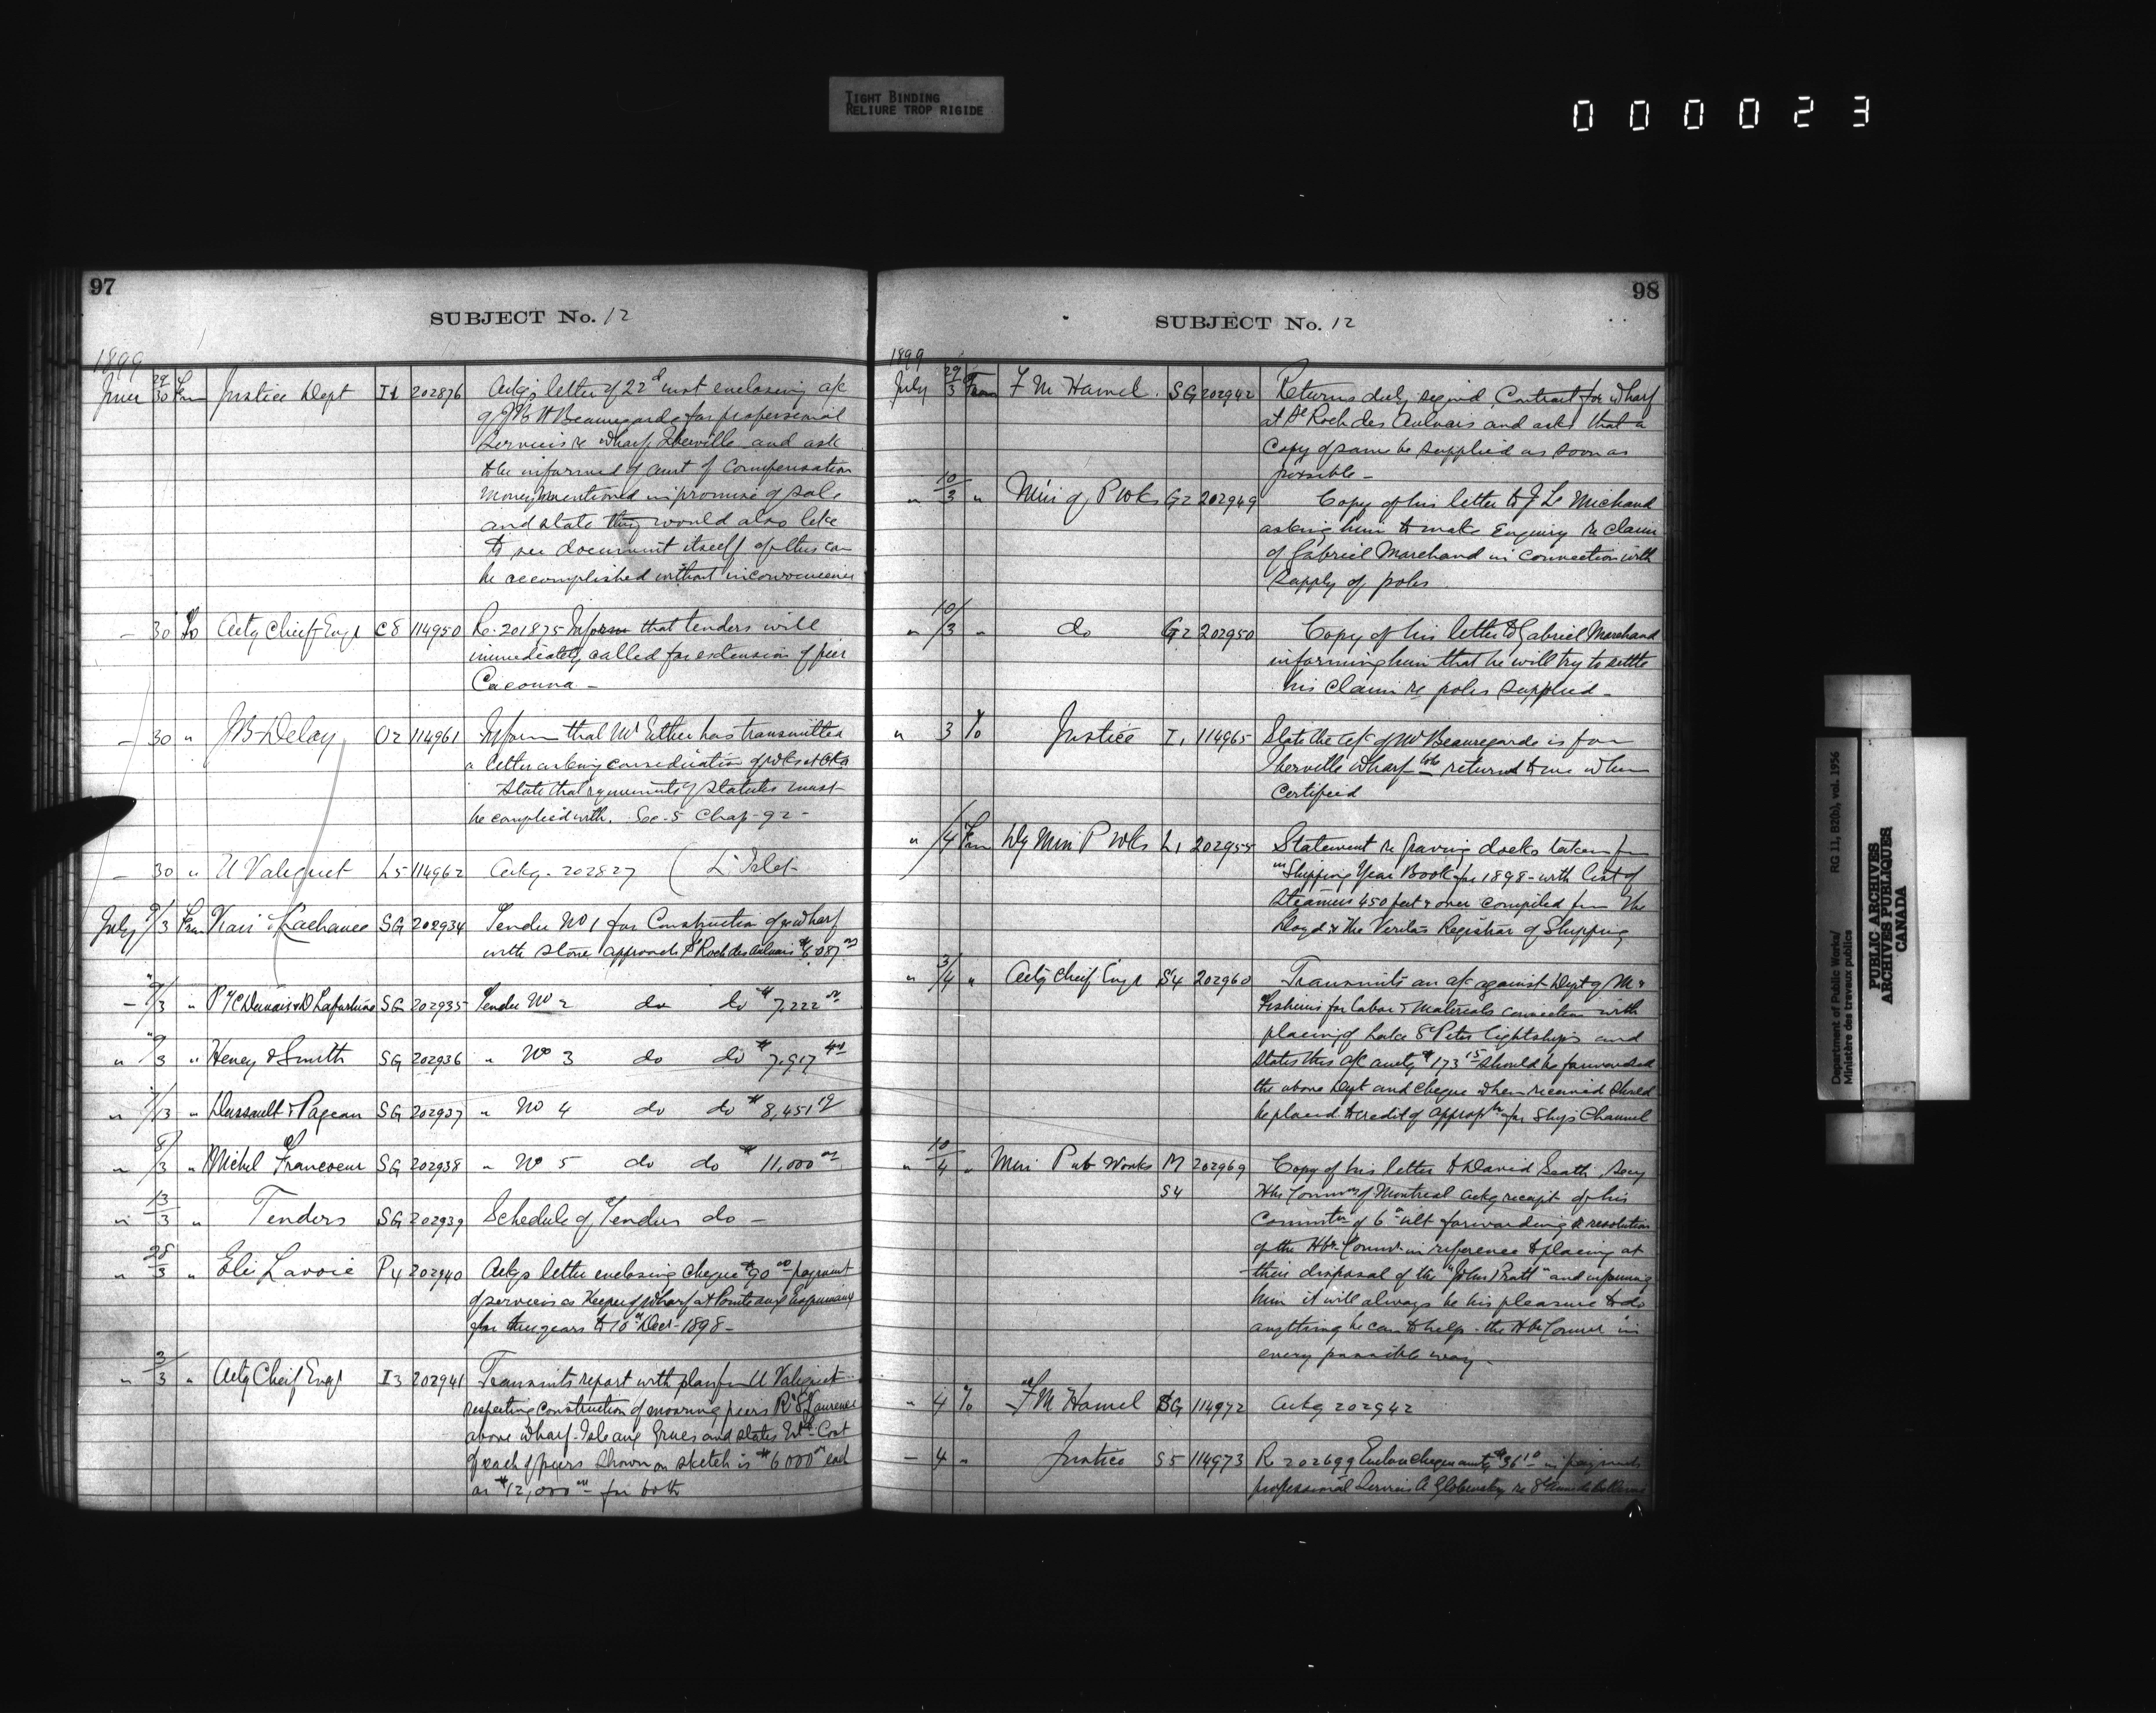 TIGHT BINDING
RELIURE TROP RIGIDE
000023
97
SUBJECT No. 12
1899
June 29/30 From Justice Dept I1 202876 Ackgs letter of 22d inst enclosing a/c
of J B H Beauregarde for professional
services re wharf Iberville and ask
to be informed of amt of compensation
money mentioned in promise of sale
and state they would also like
to see document itself if this can
be accomplished without inconvenience
— 30 To Actg Chief Engr C8 114950 Re. 201875 Inform that tenders will
immediately called for extension of pier
Cacouna —
— 30 " J B Delay O2 114961 Inform that Mr Ethier has transmitted
a letter asking consideration of wks at Oka
State that requirements of Statutes must
be complied with. Sec. 5 Chap. 92 —
— 30 " U Valiquet L5 114962 Ackg. 202827 ( L'Islet
July 9/3 From Kari & Lachance SG 202934 Tender No 1 for Construction of wharf
with stone approach St Roch des Aulnais $6087 00
— 9/3 " SG 202935 Tender No 2 do do $7,222 00
" 9/3 " Heney & Smith SG 202936 " No 3 do do $7,917 44
" 9/3 " Dussault & Pageau SG 202937 " No 4 do do $8,451 19
" 8/3 " Michel Francoeur SG 202938 " No 5 do do $11,000 00
" 13/3 " Tenders SG 202939 Schedule of Tenders do —
" 28/3 " Eli Lavoie P4 202940 Ackgs letter enclosing cheque $90 00 payment
of services as Keeper of wharf at Pointe aux Esquimaux
for three years to 10th Decr 1898 —
" 3/3 " Actg Cheif Engr I3 202941 Transmits report with plan from U Valiquet
respecting construction of mooring piers R St Laurence
above wharf Isle aux Grues and states Est. Cost
of each of piers shown on sketch is $6000 00 each
or $12,000 00 for both
98
SUBJECT No. 12
1899
July 29/3 From F M Hamel SG 202942 Returns duly signed, Contract for wharf
at St Roch des Aulnais and asks that a
copy of same be supplied as soon as
possible —
" 10/3 " Min of P Wks G2 202949 Copy of his letter to J L Michaud
asking him to make enquiry re claim
of Gabriel Marchand in connection with
supply of poles
" 10/3 " do G2 202950 Copy of his letter to Gabriel Marchand
informing him that he will try to settle
his claim re poles supplied —
" 3 To Justice I1 114965 State the a/c of Mr Beauregarde is for
Iberville wharf to be returned to me when
certified
" /4 From Dy Min P Wks L1 202955 Statement re graving docks taken from
"Shipping Year Book for 1898 with list of
steamers 450 feet & over compiled from The
Lloyd & The Veritas Registrar of Shipping
" 3/4 " Actg Cheif Engr S4 202960 Transmits an a/c against Dept of M &
Fisheries for labor & materials connection with
placing of Lake St Peter lightships and
states this a/c amtg $173 15 should be forwarded
the above Dept and cheque when received should
be placed to credit of approp for Ship Channel
" 10/4 " Min Pub Works M 202969 Copy of his letter to David Seath Secy
S4 Hbr Commrs of Montreal ackg receipt of his
commtn of 6th ult forwarding a resolution
of the Hbr Commrs in reference to placing at
their disposal of the "John Pratt" and informing
him it will always be his pleasure to do
anything he can to help the Hbr Commr in
every possible way —
" 4 To F M Hamel SG 114972 Ackg 202942
— 4 " Justice S5 114973 R 202699 Enclose cheque amtg $36 10 in payment
professional services A Globensky re
Department of Public Works/
Ministère des travaux publics
RG 11, B2(b), vol. 1956
PUBLIC ARCHIVES
ARCHIVES PUBLIQUES
CANADA